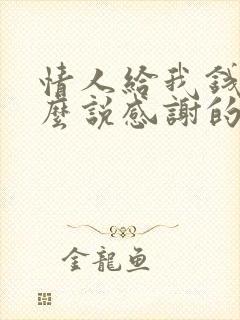 情人給我錢
麼說感謝的
金龍魚